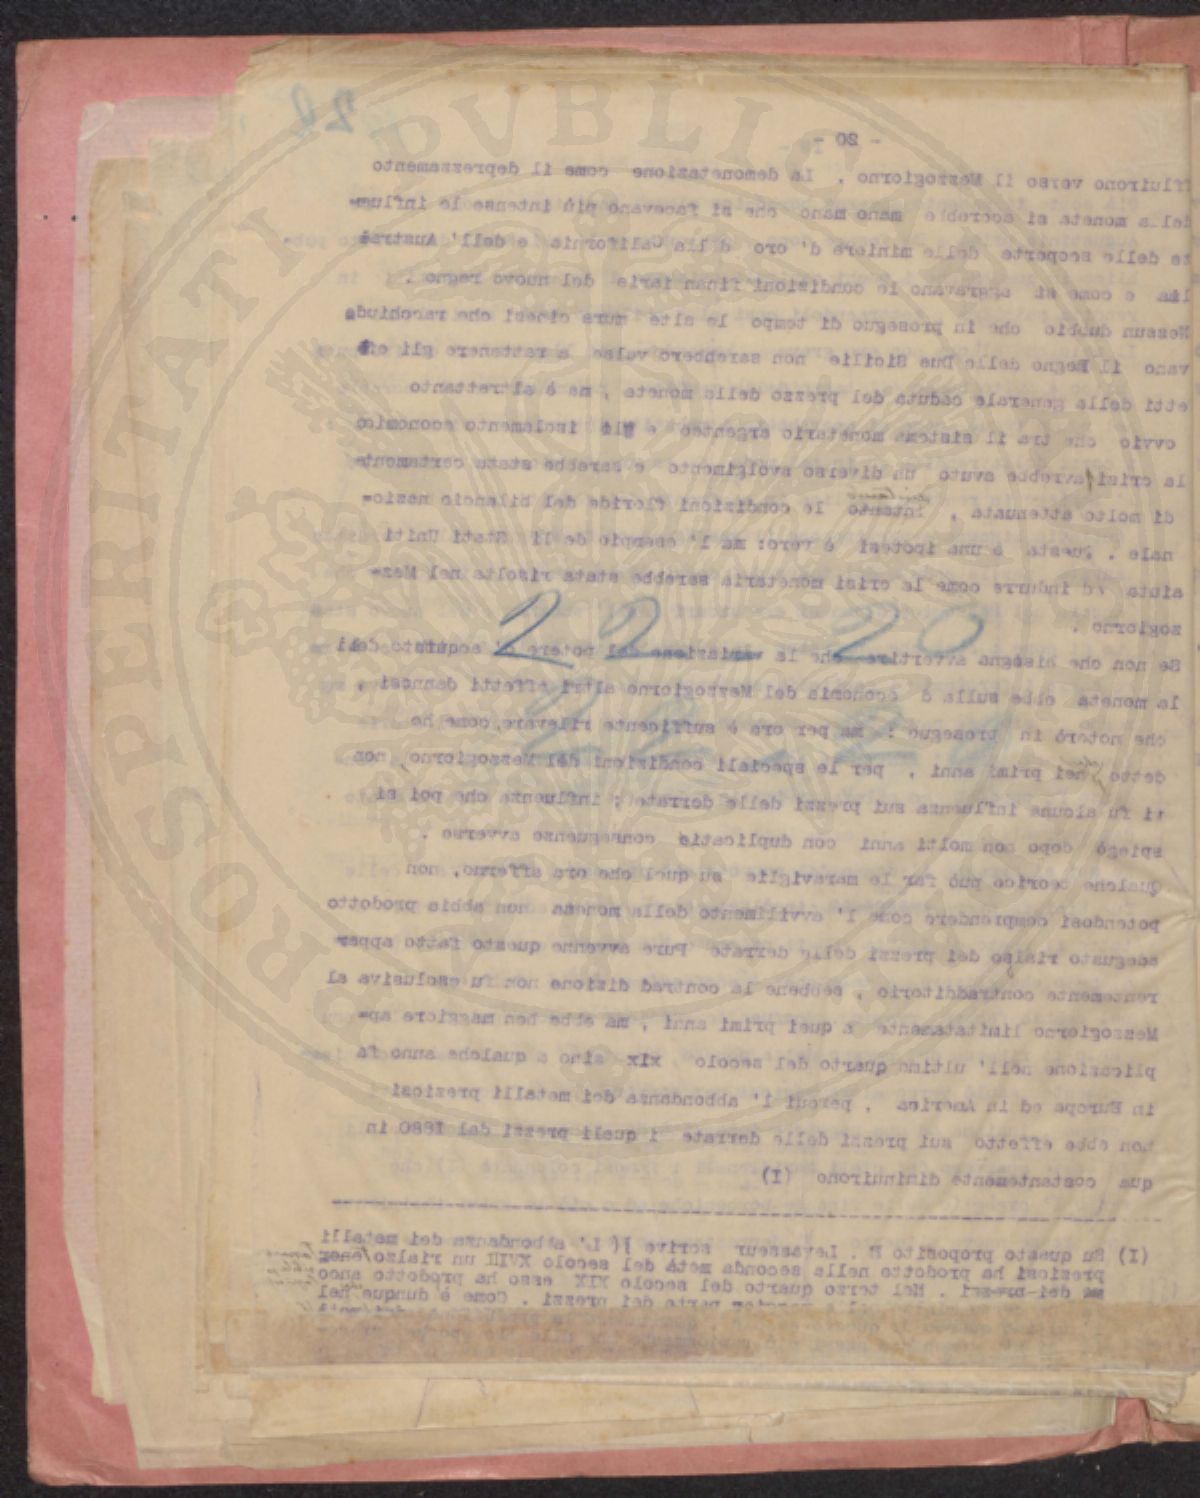 - 20 -
ffluirono verso il Mezzogiorno . La demonetazione come il deprezzamento
della moneta si accrebbe mano mano che si facevano più intense le influen-
ze delle scoperte delle miniere d' oro della California e dell' Austra-
lia e come si aggravano le condizioni finanziarie del nuovo regno .
Nessun dubbio che in proseguo di tempo le alte mura cinesi che racchiude
vano il Regno delle Due Sicilie non sarebbero valse a rattenere gli eff
etti della generale caduta del prezzo delle monete , ma è altrettanto
ovvio che tra il sistema monetario argenteo e gli isolamento economico
la crisi avrebbe avuto un diverso svolgimento e sarebbe stata certamente
di molto attenuata , intanto le condizioni floride del bilancio nazio-
nale . Questa è una ipotesi è vero: ma l' esempio degli Stati Uniti
aiuta ad indurre come la crisi monetaria sarebbe stata risolta nel Mez-
zogiorno .
22 20
Se non che bisogna avvertire che la variazione del potere d' acquisto del
la moneta ebbe sulla economia del Mezzogiorno altri effetti dannosi ,
che noterò in proseguo : ma per ora è sufficente rilevare, come ho
detto nei primi anni , per le speciali condizioni del Mezzogiorno, non
vi fu alcuna influenza sui prezzi delle derrate ; influenza che poi si
spiegò dopo non molti anni con duplicate conseguenze avverse .
Qualche teorico può far le meraviglie su quel che ora affermo, non
potendosi comprendere come l' avvilimento della moneta non abbia prodotto
adeguato rialzo dei prezzi delle derrate Pure avvenne questo fatto appar
rentemente contradditorio , sebbene la contrad dizione non fu esclusiva al
Mezzogiorno limitatamente a quei primi anni , ma ebbe ben maggiore ap-
plicazione nell' ultimo quarto del secolo XIX sino a qualche anno fa
in Europa ed in America , perchè l' abbondanza dei metalli preziosi
non ebbe effetto sui prezzi delle derrate i quali prezzi dal 1880 in
qua costantemente diminuirono (I)
(I) Su questo proposito E . Levasseur scrive )( L' abbondanza dei metalli
preziosi ha prodotto nella seconda metà del secolo XVIII un rialzo
dei prezzi . Nel terzo quarto del secolo XIX esso ha prodotto anco
parte dei prezzi . Come è dunque nel
PROSPERITATI PVBLICAE